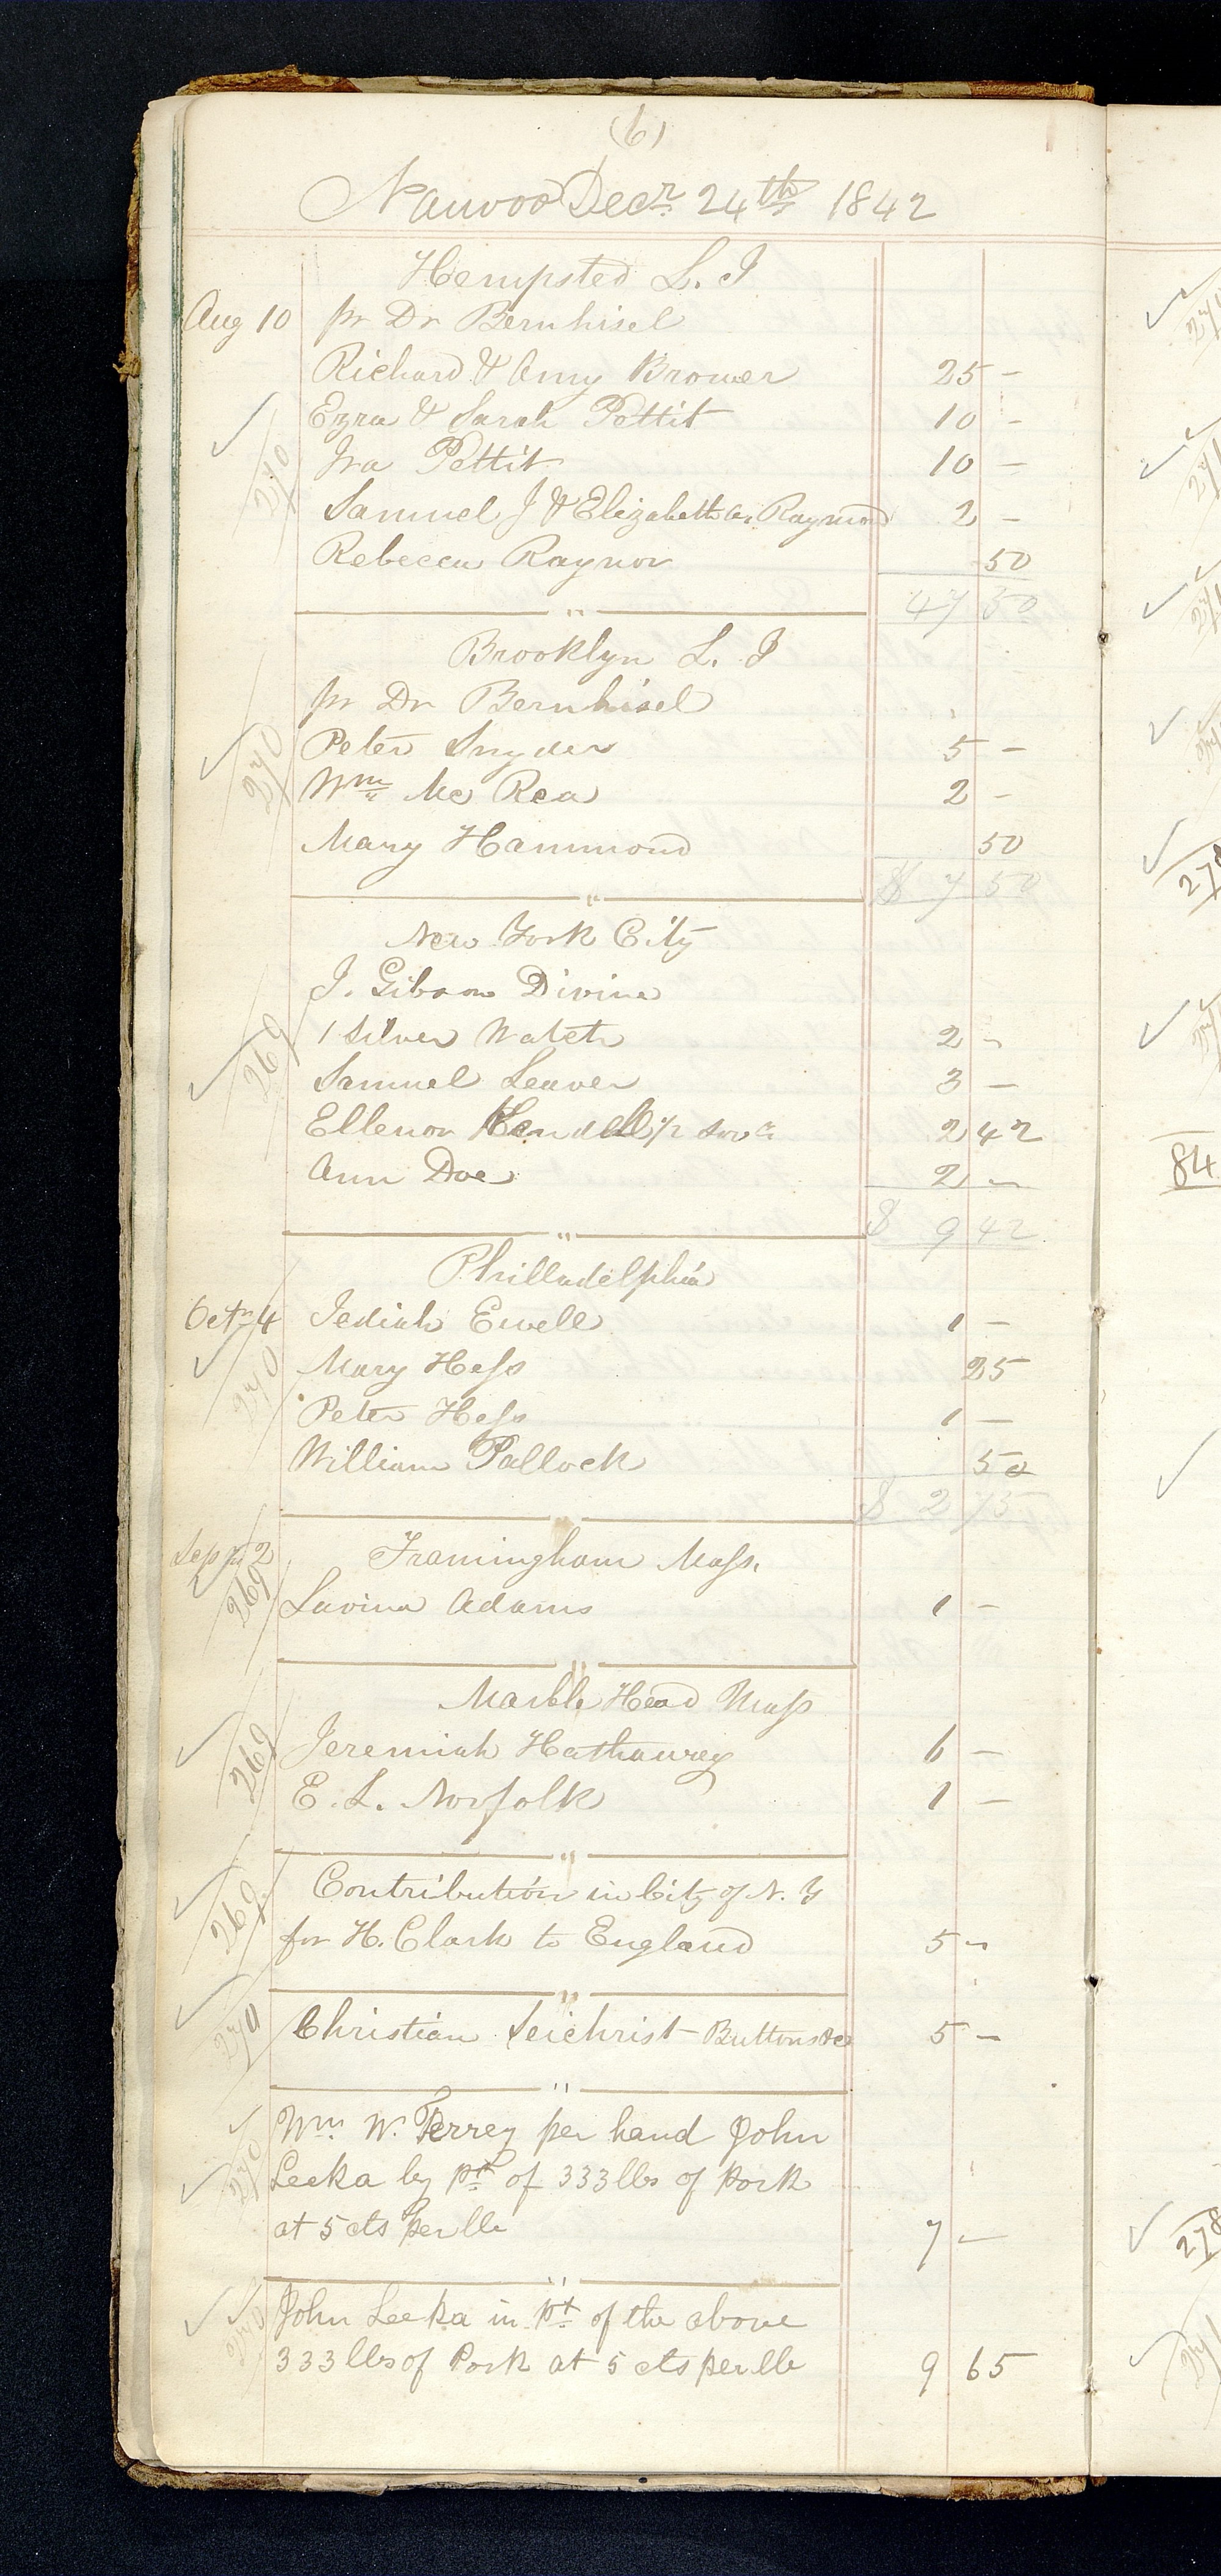 (6)
Nauvoo Decr. 24th 1842
Hempsted L. I
Aug 10 pr Dr Bernhisel
Richard & Amy Brower 25 -
Ezra & Sarah Pettit 10 -
270
Ira Pettit 10 -
Samuel J & Elizabeth A. Raymond 2 -
Rebecca Raynor 50
47 50
"
Brooklyn L. I
pr Dr Bernhisel
✓ 270 Peter Snyder 5 -
Wm Mc Rea 2 -
Mary Hammond 50
$ 7 50
"
New York City
J. Gibson Divine
1 Silver Watch 2 -
✓ 269 Samuel Leaver 3 -
Ellenor Kendell 1/2 Sovn 2 42
Ann Doe 2 -
$ 9 42
"
Philladelphia
Octr 4 Jediah Ewell 1 -
✓ 270 Mary Hess 25
Peter Hess 1 -
William Pallock 50
$ 2 75
Sep 2 Framingham Mass.
269 Lavina Adams 1 -
"
Marble Head Mass
✓ 269 Jeremiah Hathaway 6 -
E. L. Norfolk 1 -
"
Contribution in City of N. Y
✓ 269 for H. Clark to England 5 -
"
✓ 270 Christian Seichrist Buttons &c 5 -
"
✓ Wm. W. Terrey per hand John
✓ 270 Leeka by pt of 333 lbs of Pork
at 5 cts per lb 7 -
"
✓ ✓ John Leeka in pt of the above
270 333 lbs of Pork at 5 cts per lb 9 65
278
84
278